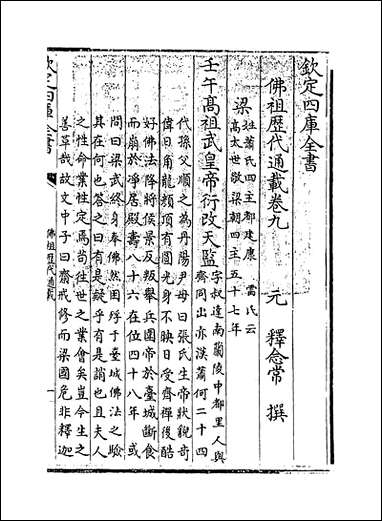 欽定四庫全書
佛祖歷代通載卷九
元 釋念常 撰
梁
姓蕭氏四主都建康 雷氏云
高太世敬梁朝四主五十七年
壬午髙祖武皇帝衍改天監
字叔逹南蘭陵中都里人與
齊同出亦漢蕭何二十四
代孫父順之為丹陽尹母曰張氏生帝狀貌竒
偉日角龍顔頂有圓光身不映日受齊禪後酷
好佛法降將侯景反叛舉兵圍帝於臺城斷食
而崩於淨居殿夀八十六在位四十八年 或
問曰梁武終身奉佛然困殍于臺城佛法之驗
其在何也答之曰有是疑乎有是誚也且夫人
之性命業性定焉尚往世之業會矣豈今生之
善革哉故文中子曰齋戒修而梁國危非釋迦
欽定四庫全書
佛祖歷代通載
一